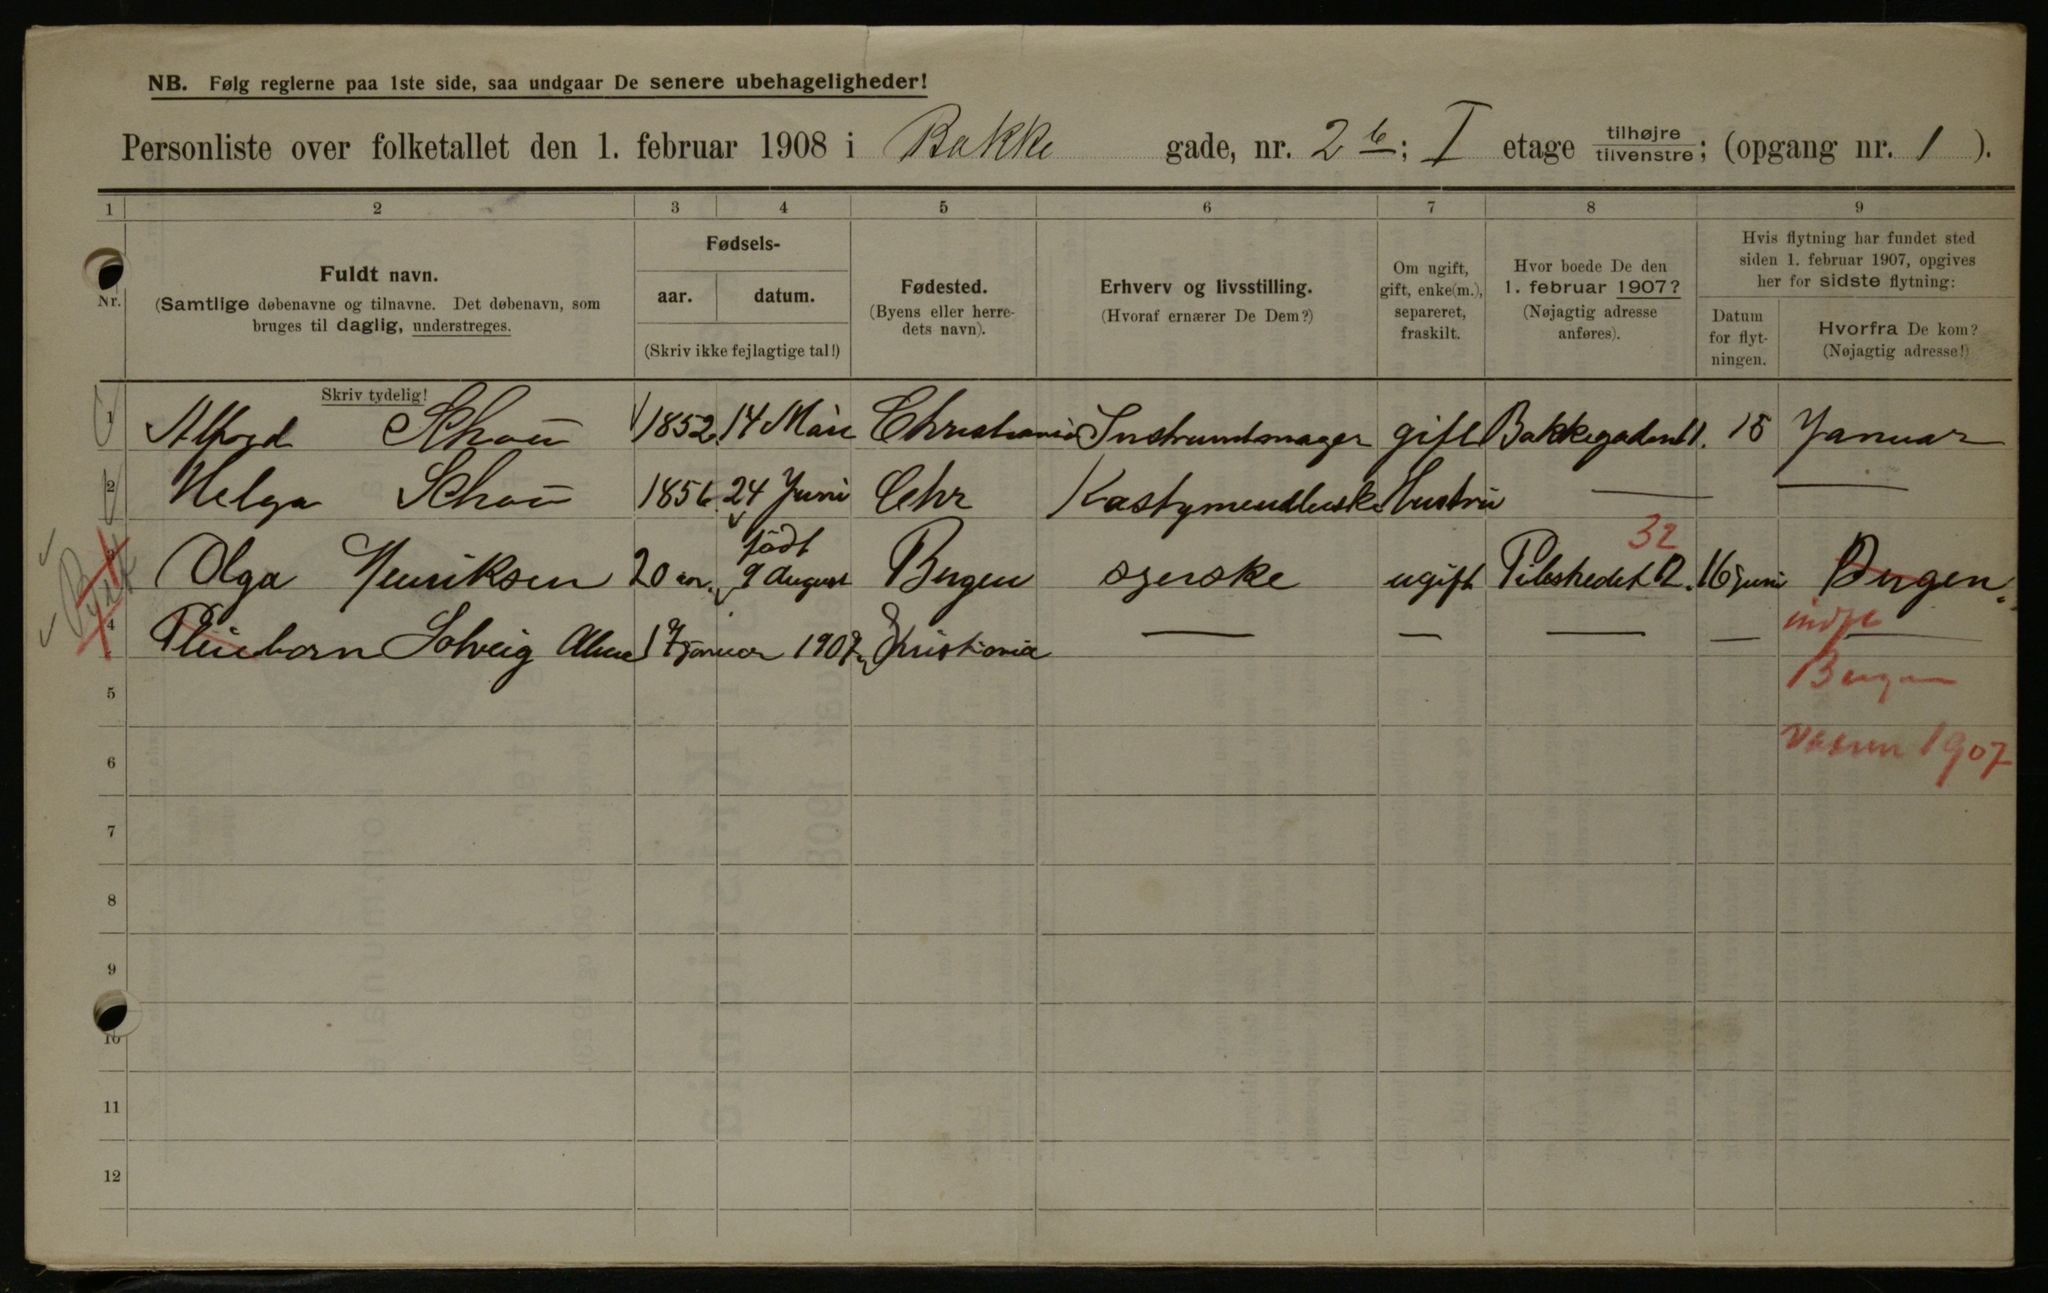 NB. Følg reglerne paa 1ste side, saa undgaar De senere ubehageligheder!
Personliste over folketallet den 1. februar 1908 i Bakke gade, nr. 2 b; I etage tilhøjre / tilvenstre; (opgang nr. 1).
1 2 3 4 5 6 7 8 9
Nr.
Fuldt navn.
(Samtlige døbenavne og tilnavne. Det døbenavn, som
bruges til daglig, understreges.
Fødsels-
aar. datum.
(Skriv ikke fejlagtige tal!)
Fødested.
(Byens eller herre-
dets navn).
Erhverv og livsstilling.
(Hvoraf ernærer De Dem?)
Om ugift,
gift, enke(m.),
separeret,
fraskilt.
Hvor boede De den
1. februar 1907?
(Nøjagtig adresse
anføres).
Hvis flytning har fundet sted
siden 1. februar 1907, opgives
her for sidste flytning:
Datum
for flyt-
ningen.
Hvorfra De kom?
(Nøjagtig adresse!)
Skriv tydelig!
1 Alfred Schou 1852 14 Christiania gift 15 Januar
2 Helga Schou 1856 24 Juni Chr Hustru —— ——
32
født
3 Olga Henriksen 20 aar. 9 August Bergen syerske ugift 16 juni Bergen.
4 Pleiebarn Solveig 17 januar 1907 Kristiania — — — — —
indfl
Bergen
vaaren 1907
5
6
7
8
9
10
11
12